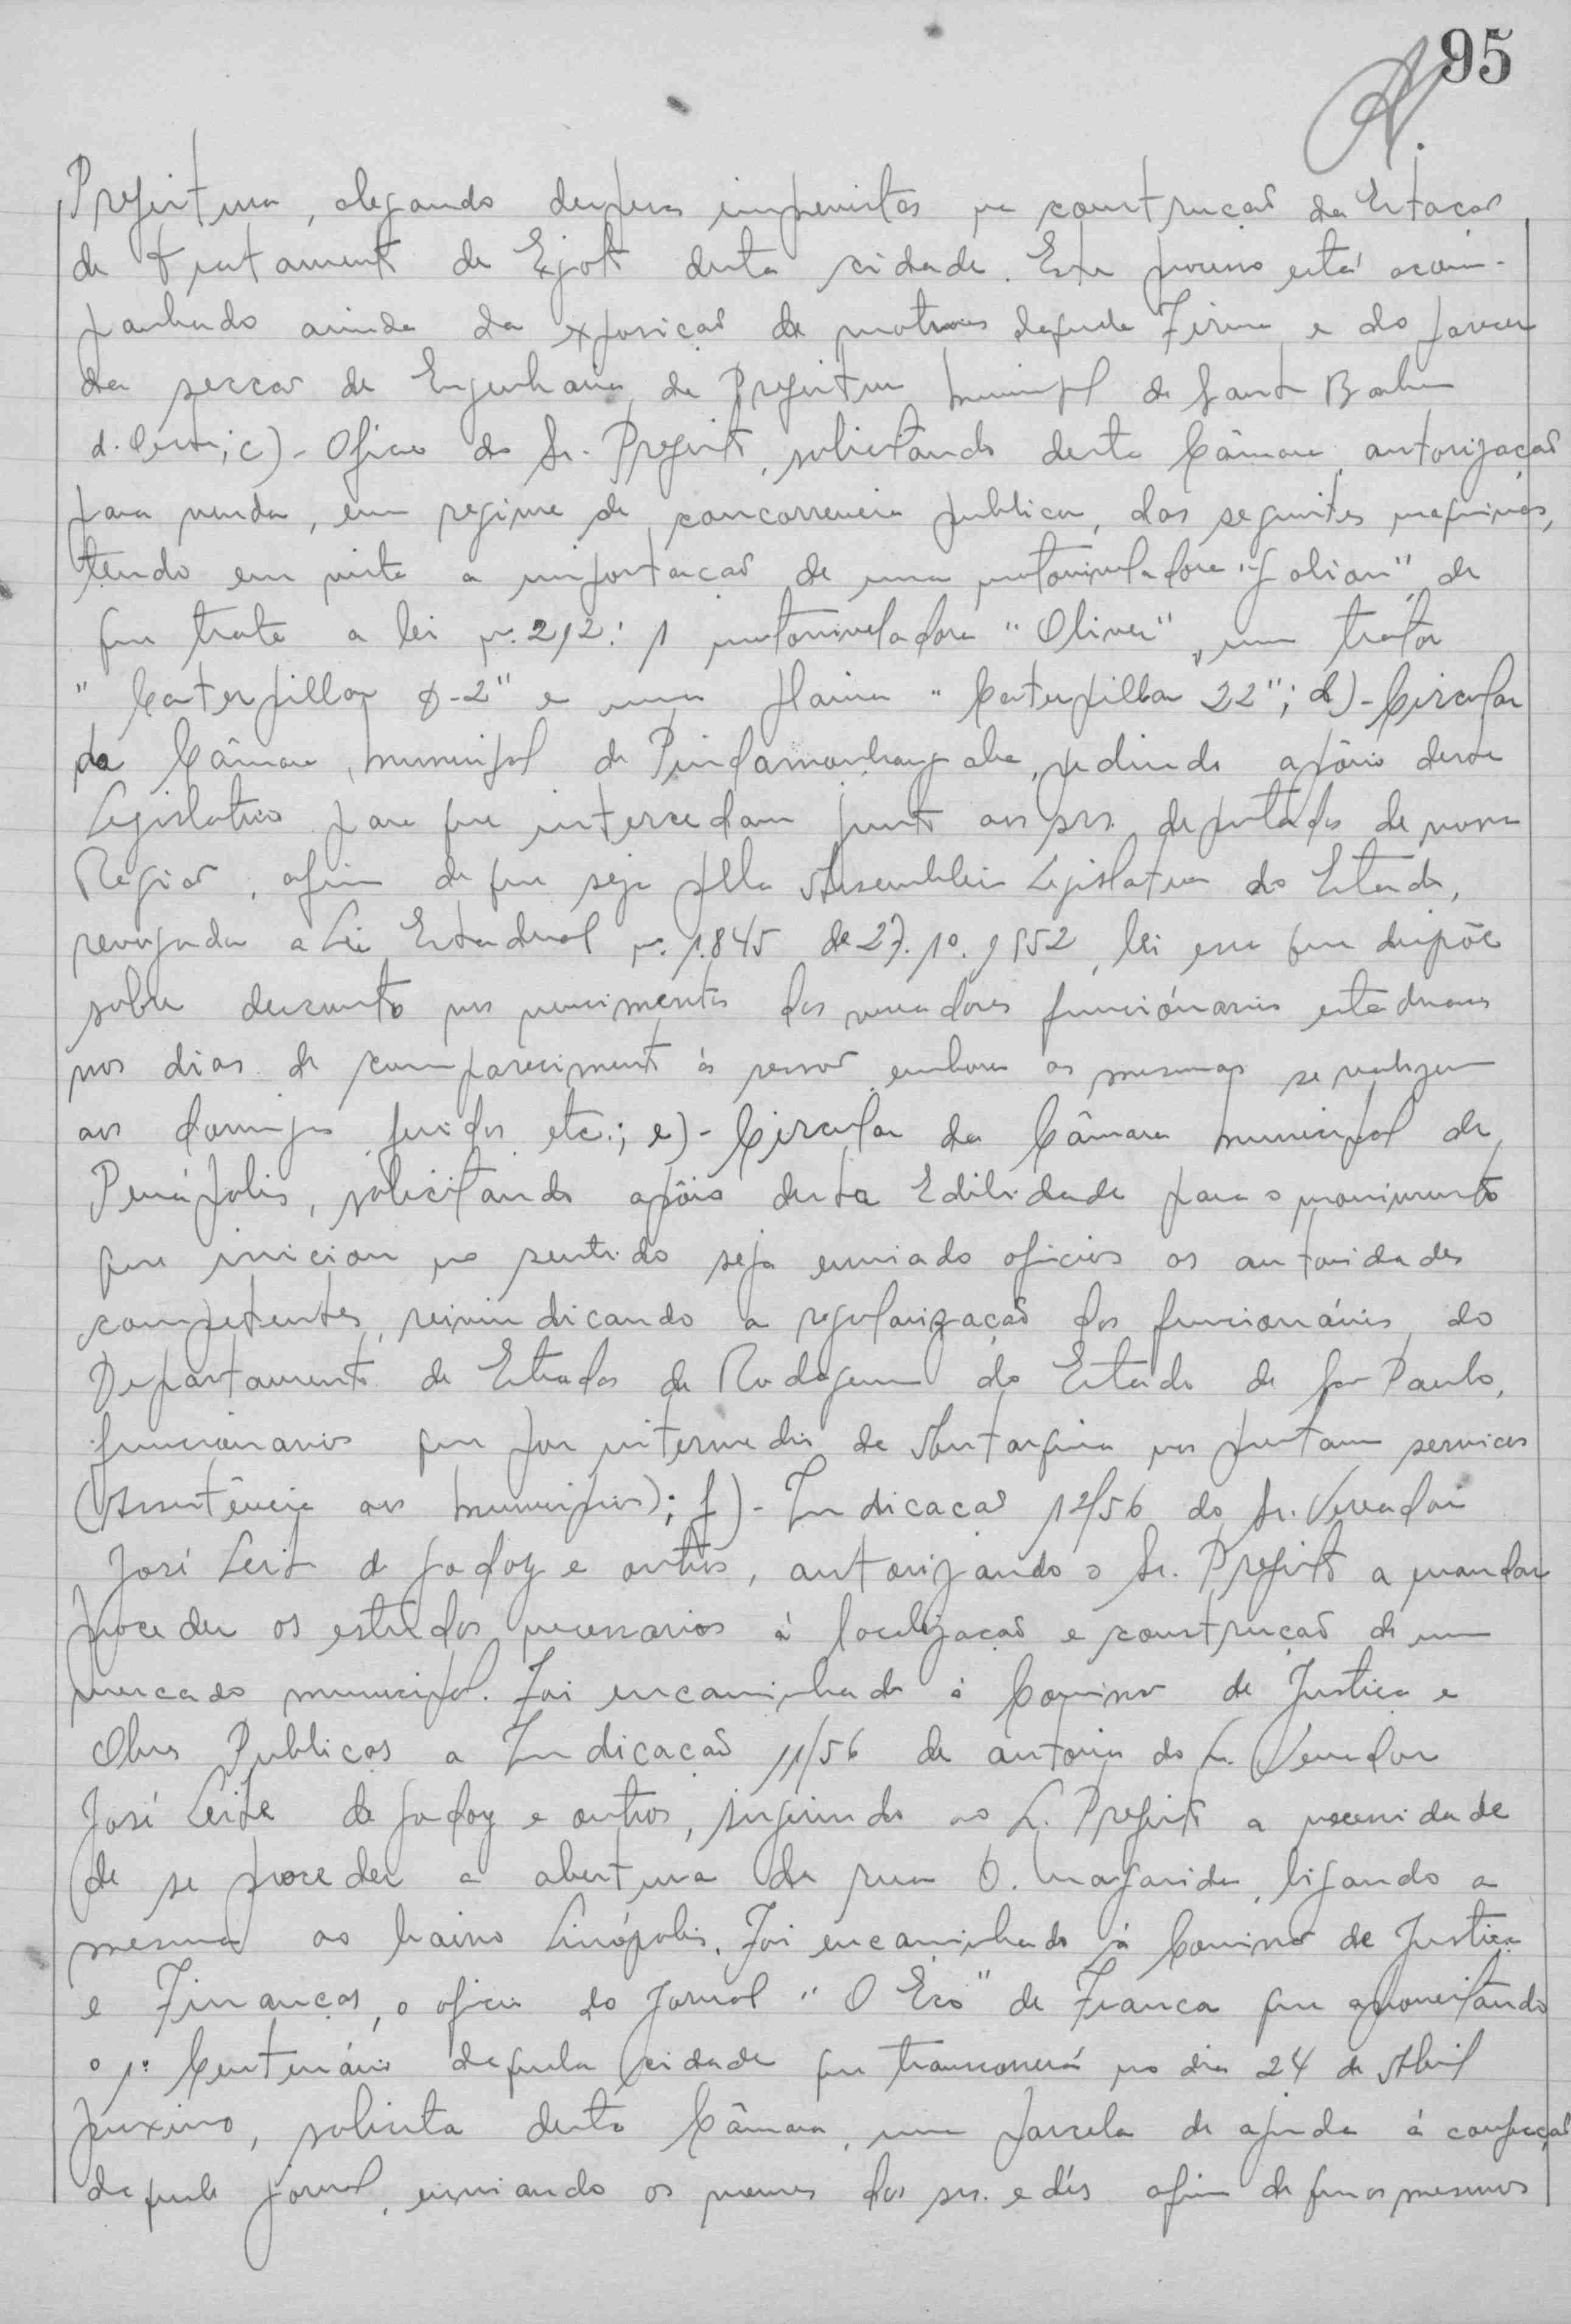 95
Prefeitura, alegando despesas imprevistas na construção da Estação
de tratamento de Esgoto desta cidade. Este processo está acom-
panhado ainda da exposição de motivos daquela Firma e do parecer
da secção de Engenharia da Prefeitura Municipal de Santa Barbara
d'Oeste; c)- Oficio do Sr. Prefeito, solicitando desta Câmara, autorização
para venda, em regime de concorrencia publica, das seguintes maquinas,
tendo em vista a importação de uma motoniveladora "Galion", de
que trata a lei n. 292: 1 motoniveladora "Oliver", um trator
"Caterpillar D-2" e uma plaina "Caterpillar 22"; d)- Circular
da Câmara Municipal de Pindamonhangaba, pedindo apôio desse
Legislativo para que intercedam junto aos srs. deputados de nossa
Região, afim de que seja pella Assembleia Legislativa do Estado,
revogada a Lei Estadual n. 1.845 de 27.10.1952, lei essa que dispõe
sobre desconto nos vencimentos dos vereadores funciónarios estaduaes
nos dias de comparecimento ás sessões embora as mesmas se realizem
aos domingos feriados etc.; e)- Circular da Câmara Municipal de
Penápolis, solicitando apôio desta Edilidade para o movimento
que iniciou no sentido seja enviado oficios as autoridades
competentes, reivindicando a regularização dos funcionários do
Departamento de Estradas de Rodagem do Estado de São Paulo,
funcionarios que por intermedio de Autarquia nos prestam serviços
(Assistência aos Municipios); f)- Indicação 12/56 do Sr. Vereador
José Leite de Godoy e outros, autorizando o Sr. Prefeito a mandar
proceder os estudos necessarios á localização e construção de um
mercado municipal. Foi encaminhado á Comissão de Justiça e
Obras Publicas a Indicação 11/56 de autoria do Sr. Vereador
José Leite de Godoy e outros, sugerindo ao Sr. Prefeito a necessidade
de se proceder a abertura da rua D. Margarida, ligando a
mesma ao bairro Linópolis. Foi encaminhado á Comissão de Justiça
e Finanças, o oficio do Jornal "O Eco" de Franca que aproveitando
o 1º Centenário daquela cidade que transcorrerá no dia 24 de Abril
proximo, solicita desta Câmara, uma parcela de ajuda á confecção
daquele jornal, enviando os nomes dos srs. edís afim de que os mesmos